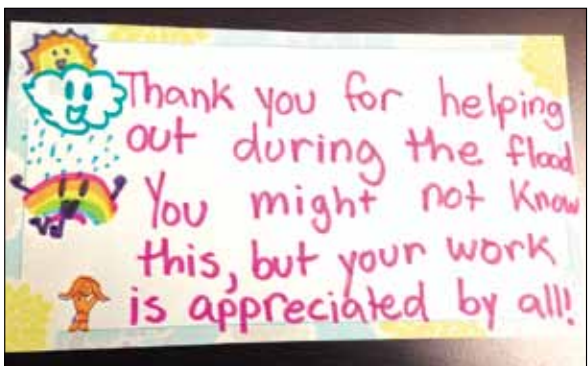 Thank you for helping
out during the flood
You might not know
this, but your work
is appreciated by all!